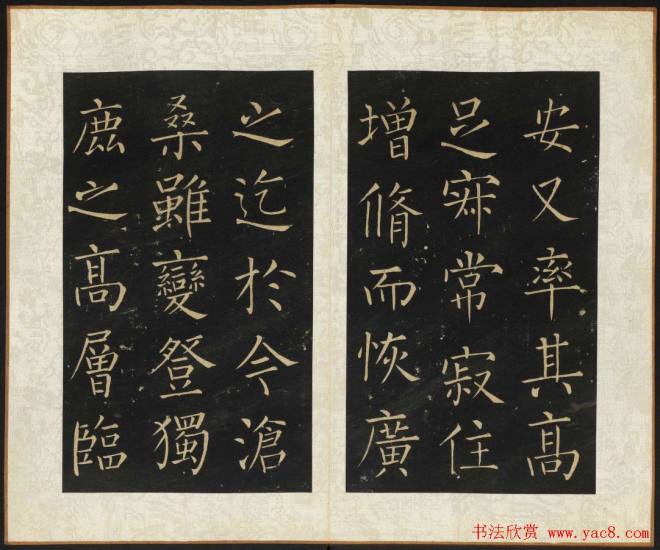 安又率其高
足寐常寂住
增脩而恢廣
之迄於今滄
桑雖變登獨
鹿之高層臨
书法欣赏 www.yac8.com